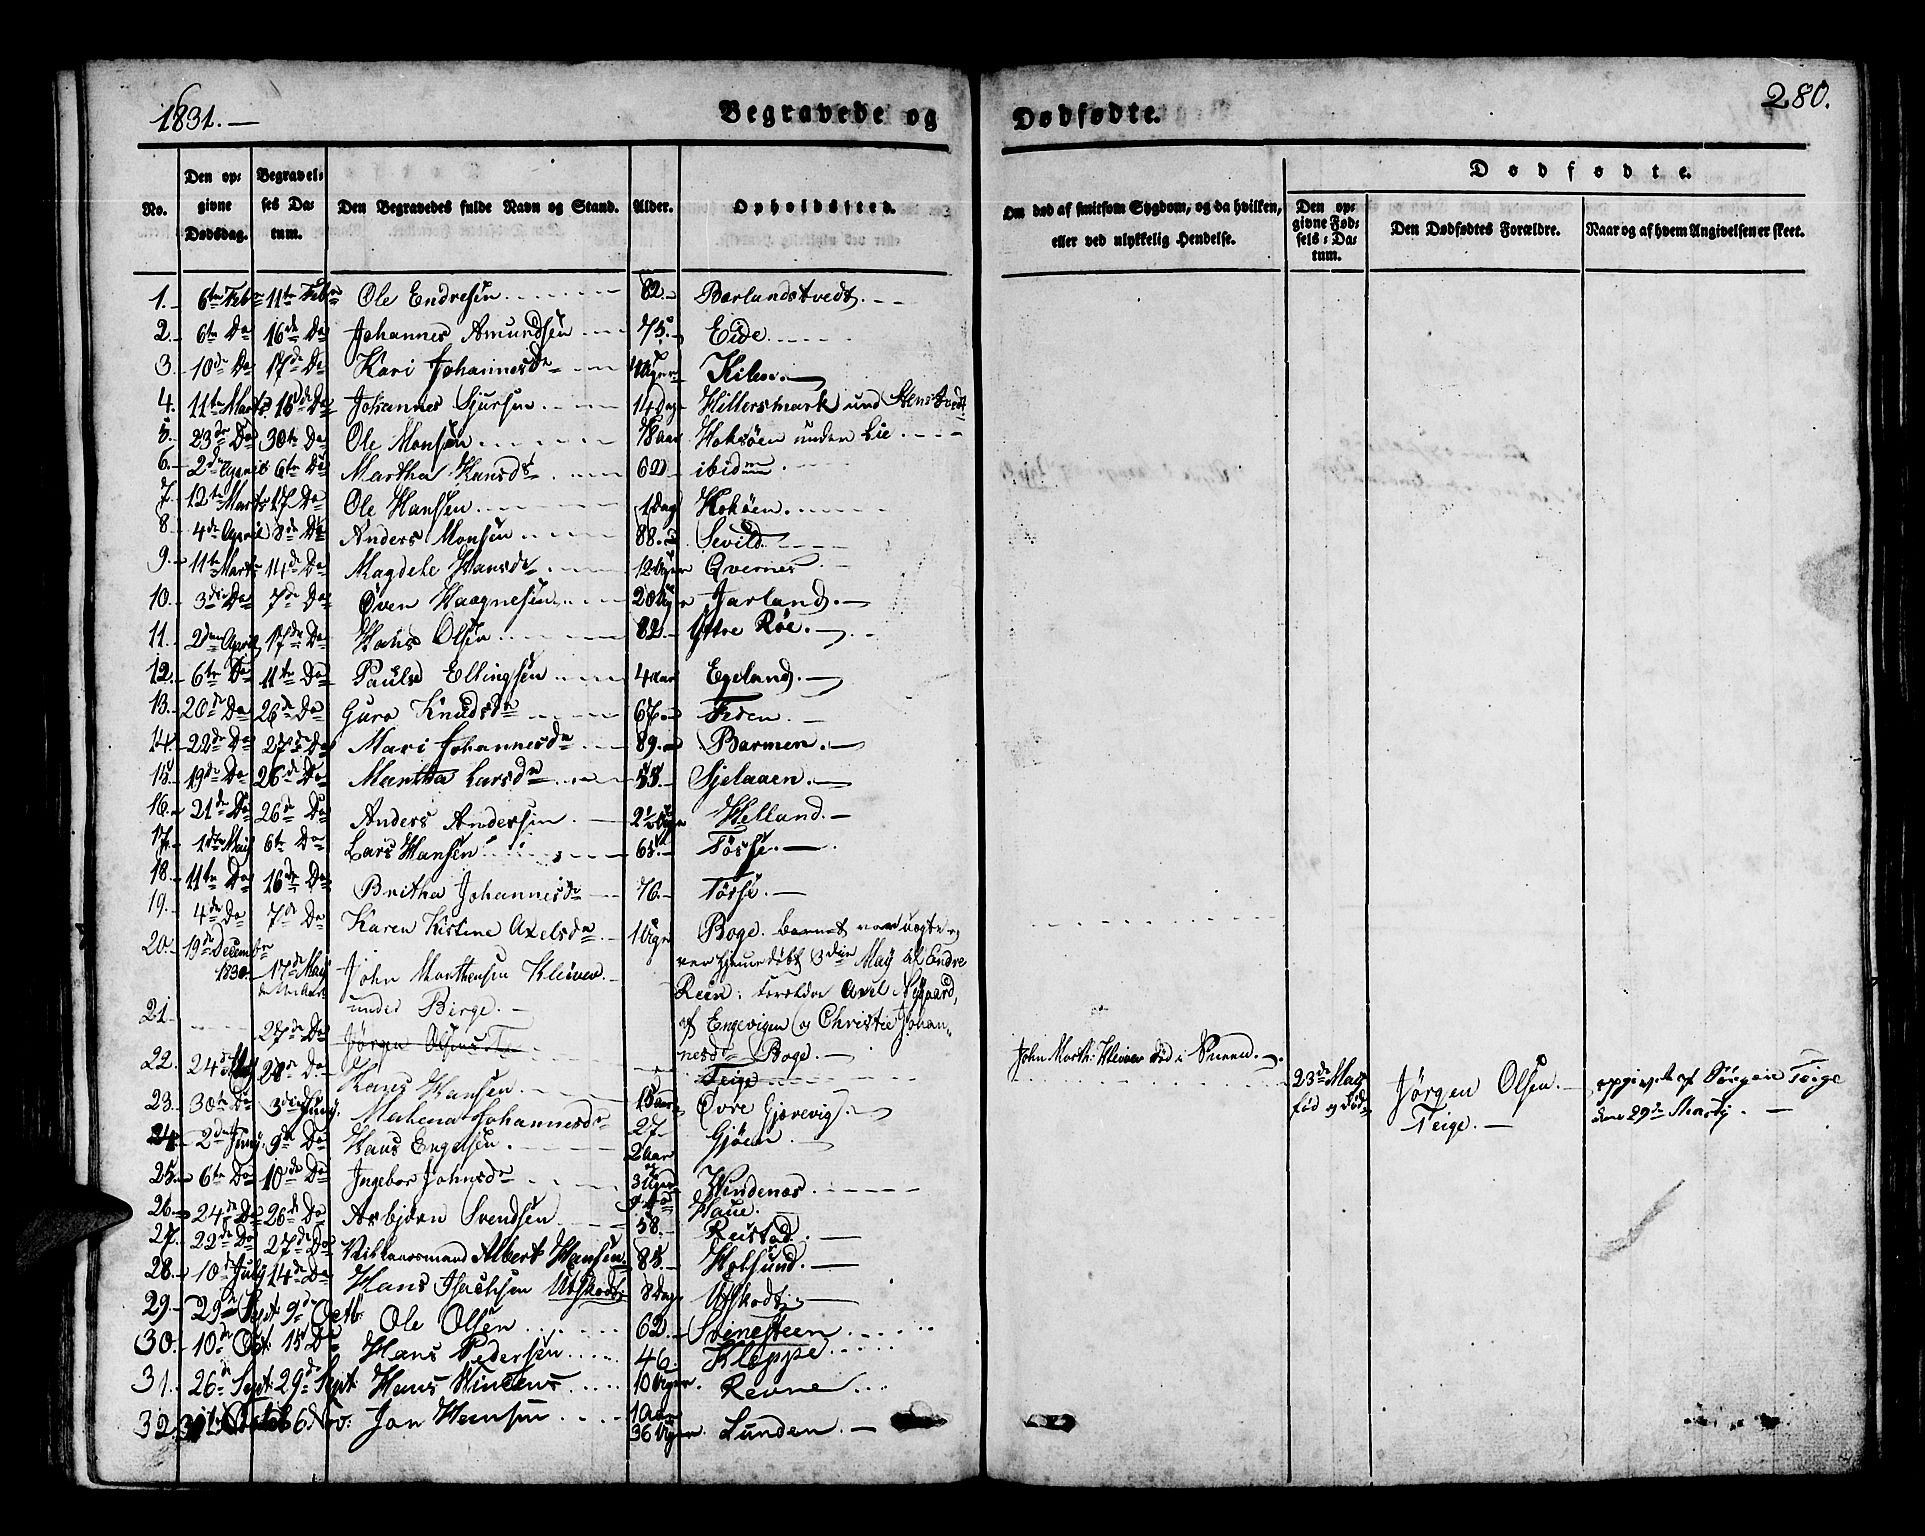 1831.—
Begravede og
Dødfødte.
280.
No.
Den opgivne Dødsdag.
Begravelses Datum.
Den Begravedes fulde Navn og Stand.
Alder.
Opholdssted.
Om død af smitsom Sygdom, og da hvilken, eller ved ulykkelig Hendelse.
Dødfødte.
Den opgivne Fødsels-Datum.
Den Dødfødtes Forældre.
Naar og af hvem Angivelsen er skeet.
1. 6te Febr 11te Febr Ole Endresen 82 Berlandstvedt
2. 6te Do 16de Do Johannes Amundsen 75 Eide
3. 10de Do 17de Do Kari Johannesdr Uger Kilen
4. 11te Marts 16de Do Johannes Sjursen 14 Dage Hillersmark und Stenstvedt
5. 23de Do 30te Do Ole Monsen 78 aar Hoksöen under Lie
6. 2den April 6te Do Martha Hansdr 62 ibidem
7. 12te Marts 17 Do Ole Hansen 1 Dag Hoksöen
8. 4de April 8de Do Anders Monsen 88 Sevild
9. 11te Marts 14de Do Magdele Hansdr 12 Uger Qvernes
10. 3die Do 7de Do Øven Haagnesen 20 Uger Jarland
11. 2den April 17de Do Hans Olsen 82 Yttre Röe
12. 6te Do 11te Do Paul Ellingsen 4 aar Egeland
13. 20de Do 26de Do Guro Knudsdr 67 Feden
14. 22de Do 27de Do Mari Johannesdr 89 Barmen
15. 19de Do 26de Do Martha Larsdr 55 Sjelaaen
16. 21de Do 26de Do Anders Andersen 2½ Uger Helland
17. 1ste Maij 6te Do Lars Hansen 65 Tösse
18. 11te Do 16de Do Britha Johannesdr 76 Tösse
19. 4de Do 7de Do Karen Kistine Axelsdr 1 Uge Boge. barnet var uægte og
var hjemmedöbt 3die Maij af Endre
Reen: Foreldre Axel Nygaard,
af Engevigen og Christie Johan-
nesdr Boge.
20. 19de Decembr 1830 17de Maij John Marthensen Kleiven
under Birge.
John Marth: Kleiven död i
21. 27de Do Jörgen Olsens Teige
23de Maij
fød og död
Jörgen Olsen
Teige.
opgivet af Jörgen Teige
den 29de
22. 24de Maij 28de Do Hans Hansen 18 aar Övre Gjerevig
23. 30te Do 3die Junij Malena Johannesdr 27 Gjöen
24. 2den Junij 9de Do Hans Engelsen 2 aar
og
3 Uger
25. 6te Do 10de Do Ingebor Johnsdr Hindenes
26. 24de Do 26de Do Asbjörn Svendsen 58 Haue
27. 22de Do 27de Do Albert Hansen 85 Reistad
28. 10de Julij 14de Do Hans Isachsen Utskodt 8 Dage Holsund
29. 29de Sept. 9de Octb. Ole Olsen 62 Utskodt
30. 10de Oct. 15de Do Hans Pedersen 46 Svinesteen
Kleppe
31. 26de Sept. 29de Sept. Hans Vincens 10 Uger Revne
32. Octob 6 Nov. Jon Hansen 1 aar
36 Uger Lunden